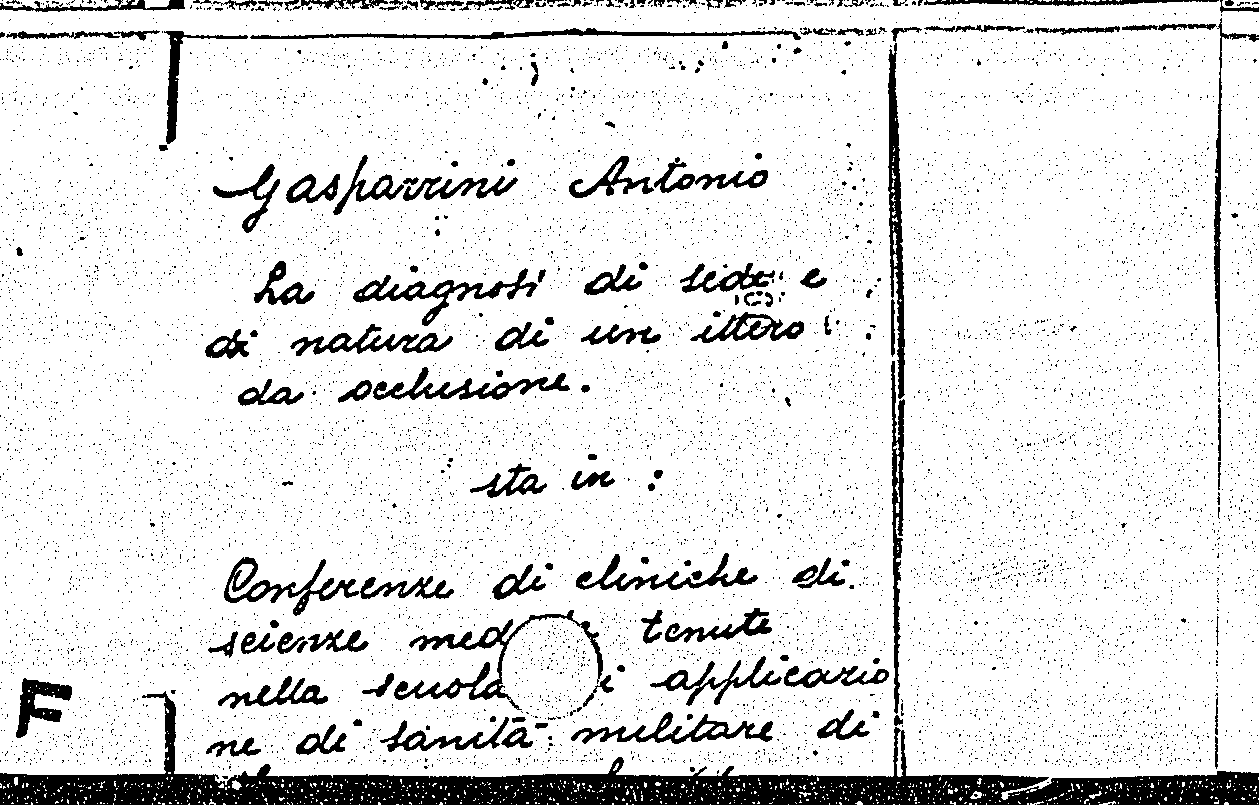 Gasparrini Antonio
La diagnosi di sede e
di natura di un ittero
da occlusione.
sta in :
Conferenze di cliniche di
scienze tenute
nella scuola applicazio
ne di sanità militare di
F